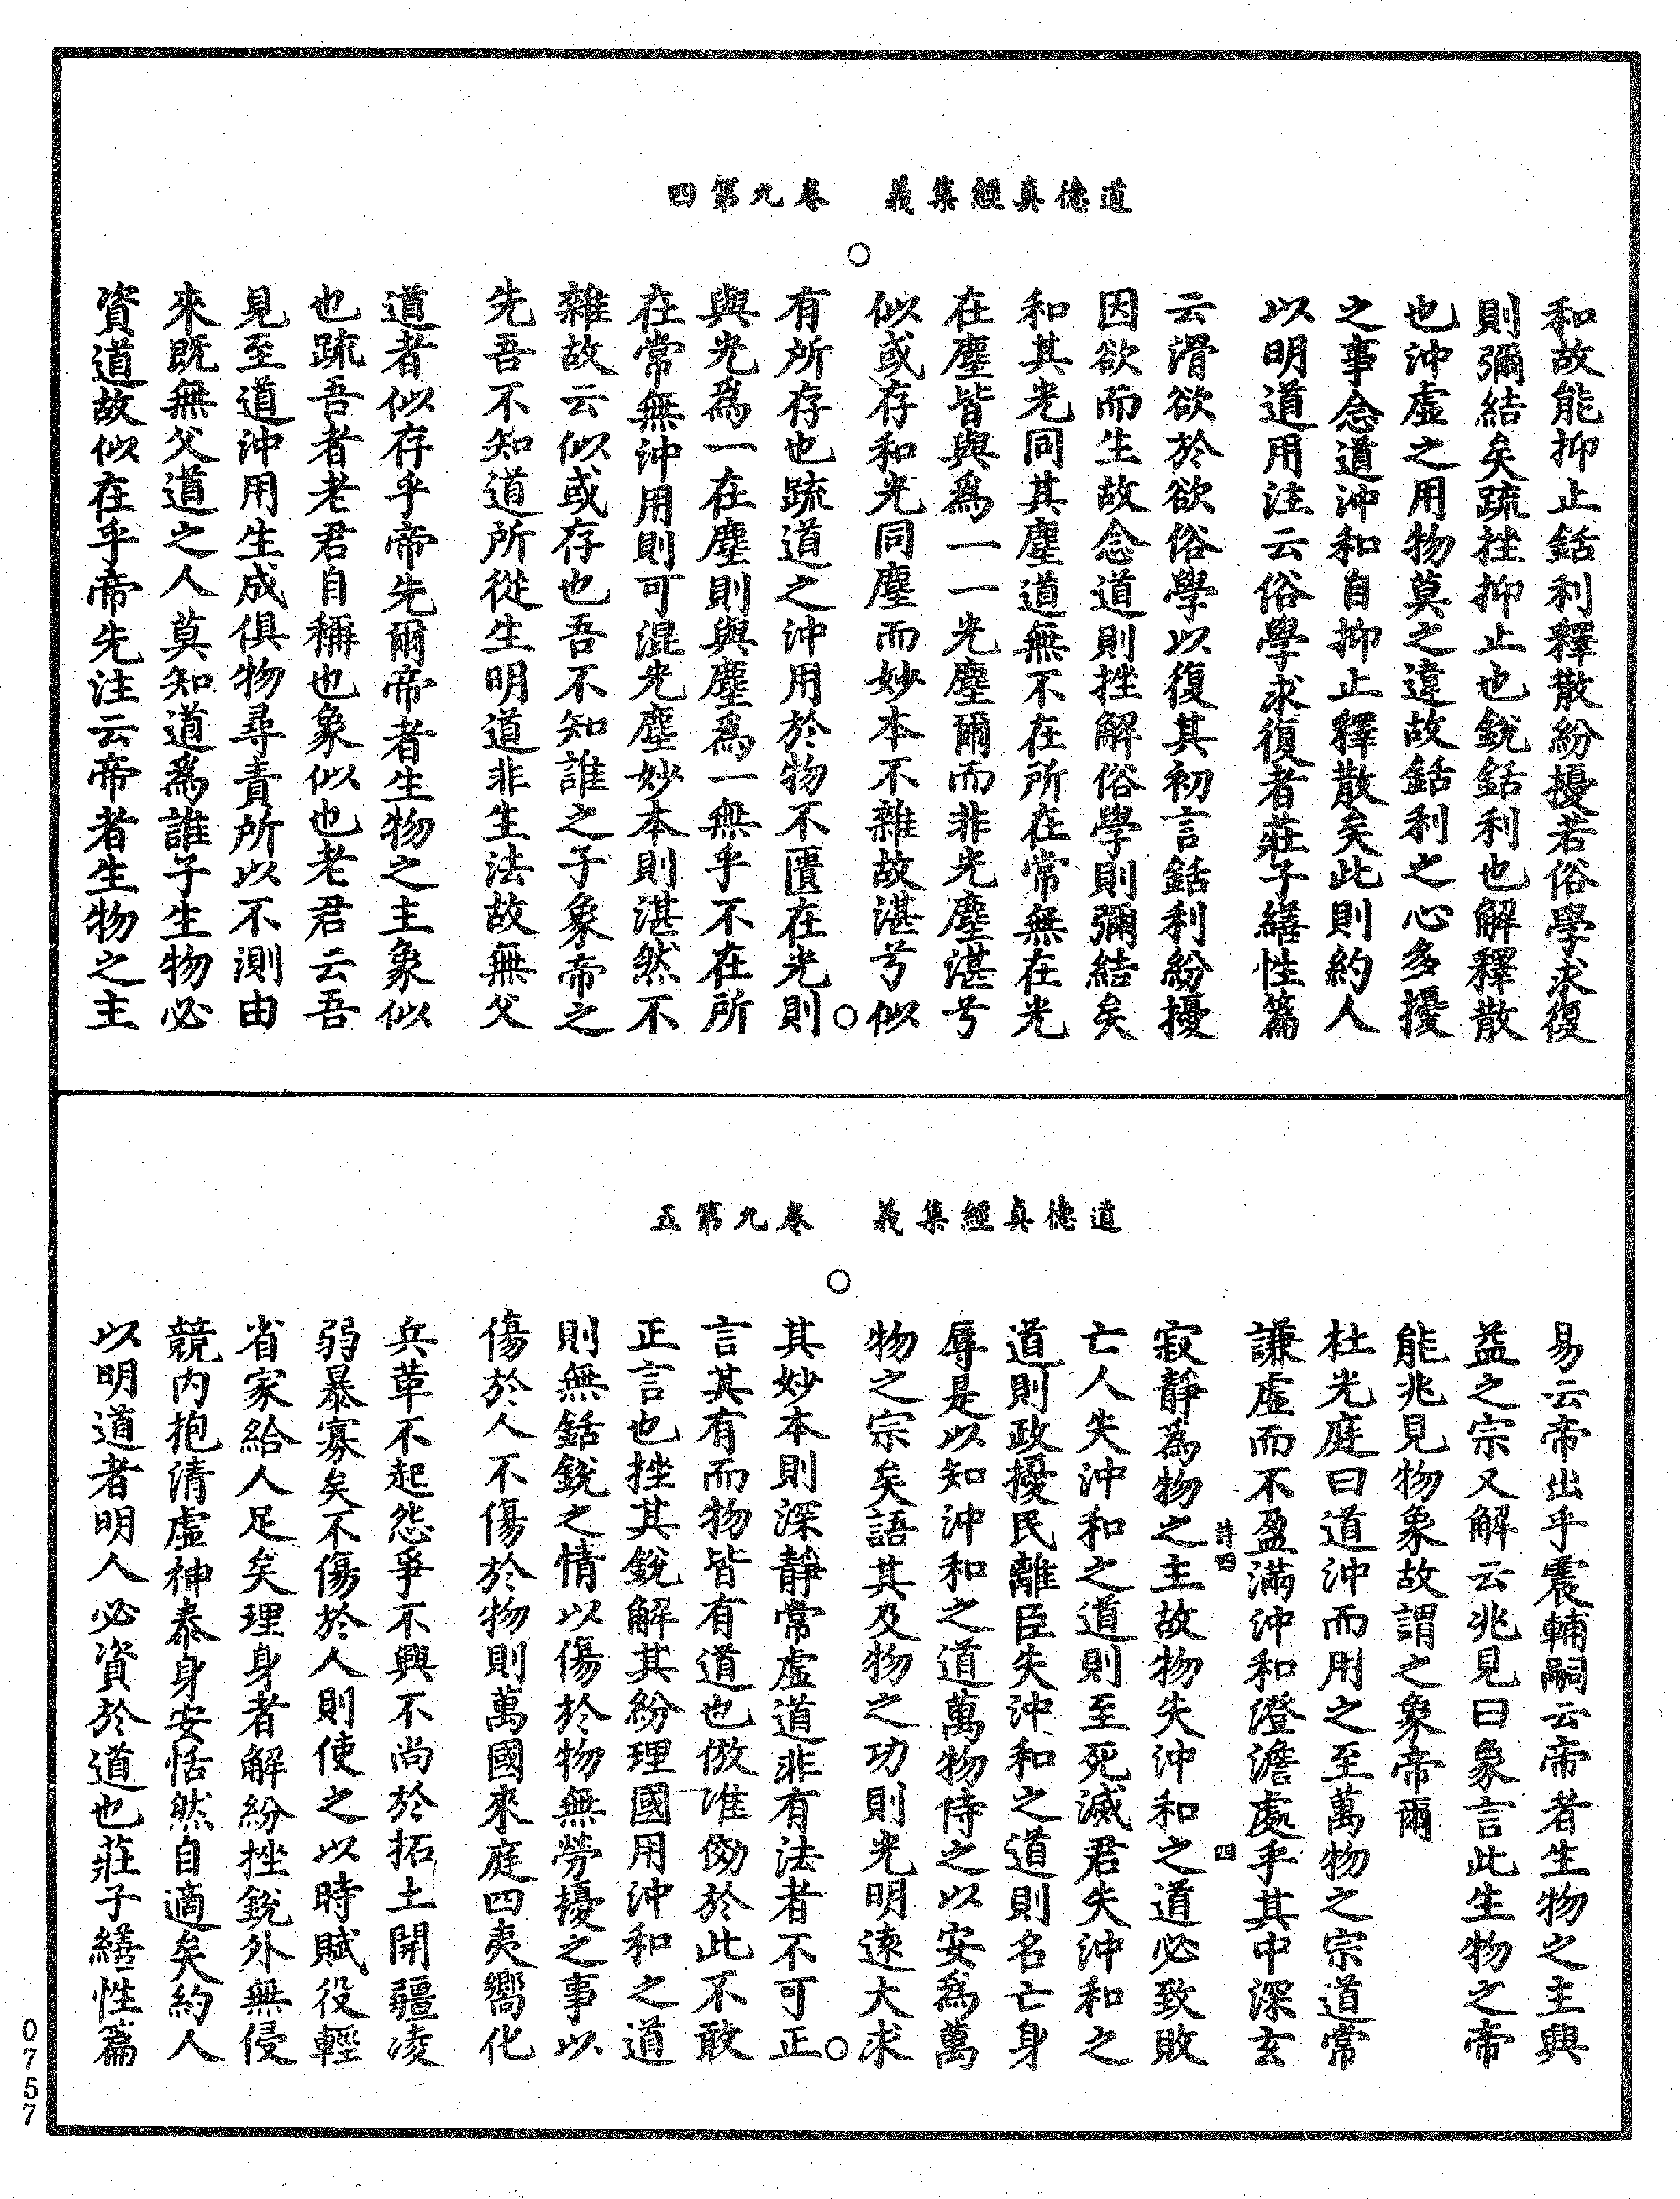 道德真經集義　卷九第四
和故能抑止銛利釋散紛擾若俗學求復
則彌結矣疏挫抑止也銳銛利也解釋散
也沖虛之用物莫之違故銛利之心多擾
之事念道沖和自抑止釋散矣此則約人
以明道用注云俗學求復者莊子繕性篇
云滑欲於欲俗學以復其初言銛利紛擾
因欲而生故念道則挫解俗學則彌結矣
和其光同其塵道無不在所在常無在光
在塵皆與爲一一光塵爾而非光塵湛兮
似或存和光同塵而妙本不雜故湛兮似
有所存也疏道之沖用於物不匱在光則
與光爲一在塵則與塵爲一無乎不在所
在常無沖用則可混光塵妙本則湛然不
雜故云似或存也吾不知誰之子象帝之
先吾不知道所從生明道非生法故無父
道者似存乎帝先爾帝者生物之主象似
也疏吾者老君自稱也象似也老君云吾
見至道沖用生成俱物尋責所以不測由
來既無父道之人莫知道爲誰子生物必
資道故似在乎帝先注云帝者生物之主
道德真經集義　卷九第五
易云帝出乎震輔嗣云帝者生物之主興
益之宗又解云兆見曰象言此生物之帝
能兆見物象故謂之象帝爾
杜光庭曰道沖而用之至萬物之宗道常
謙虛而不盈滿沖和澄澹處乎其中深玄
詩四　四
寂靜爲物之主故物失沖和之道必致敗
亡人失沖和之道則至死滅君失沖和之
道則政擾民離臣失沖和之道則名亡身
辱是以知沖和之道萬物恃之以安爲萬
物之宗矣語其及物之功則光明遠大求
其妙本則深靜常虛道非有法者不可正
言其有而物皆有道也倣准俲於此不敢
正言也挫其銳解其紛理國用沖和之道
則無銛銳之情以傷於物無勞擾之事以
傷於人不傷於物則萬國來庭四夷嚮化
兵革不起怨爭不興不尚於拓土開疆凌
弱暴寡矣不傷於人則使之以時賦役輕
省家給人足矣理身者解紛挫銳外無侵
競内抱清虛神泰身安恬然自適矣約人
以明道者明人必資於道也莊子繕性篇
0757